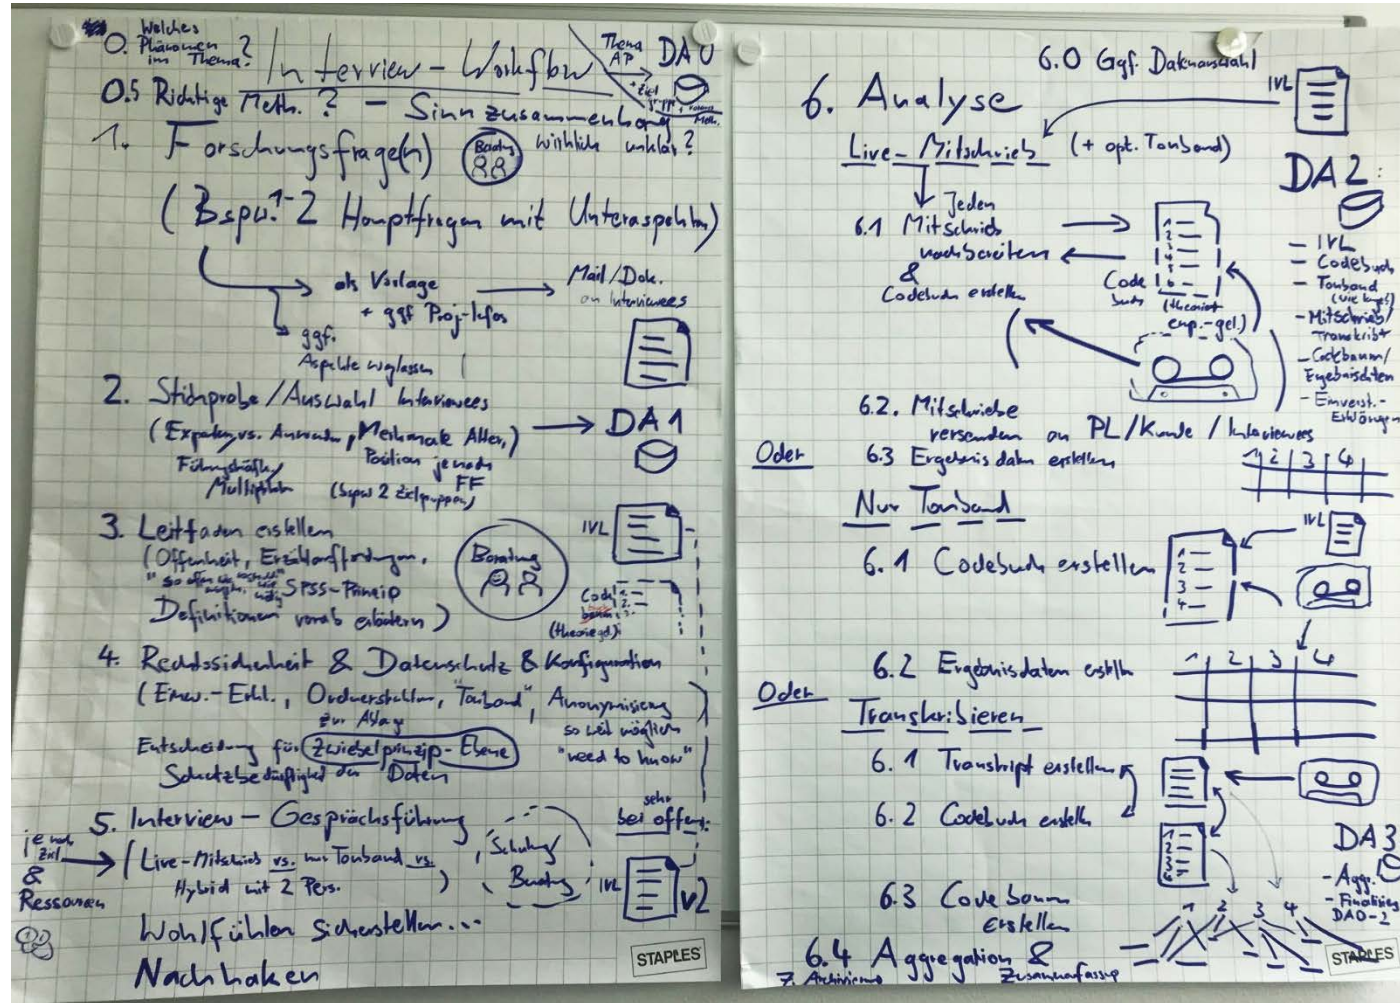 0. Welches
Phänomen
im Thema?
Interview-Workflow
Thema
AP
+ Ziel
DA 0
Meth.
0.5 Richtige Meth. ? - Sinnzusammenhang
wirklich unklar?
1. Forschungsfrage(n)
Beratung
(Bspw. 1-2 Hauptfragen mit Unteraspekten)
als Vorlage
+ ggf Proj-Infos
Mail/Dok.
an Interviewees
ggf.
Aspekte weglassen
2. Stichprobe/Auswahl Interviewees
(Experten vs. Anwender, Merkmale Alter,)
Position je nach
FF
Führungskräfte/
Multiplik
(bspw 2 Zielgruppen)
DA 1
3. Leitfaden erstellen
(Offenheit, Erzählaufforderungen,
"so offen wie
SPSS-Prinzip
Definitionen vorab erläutern)
Beratung
IVL
Code
baum
(theoriegel.)
1.
2.
3.
4. Rechtssicherheit & Datenschutz & Konfiguration
(Einw.-Erkl., Ordnerstruktur, "Tonband", Anonymisierung
zur Ablage
so weit möglich
"need to know"
Entscheidung für Zwiebelprinzip-Ebene
Schutzbedürftigkeit der Daten
5. Interview-Gesprächsführung
je nach
Ziel
&
Ressourcen
(Live-Mitschrieb vs. nur Tonband vs.
Hybrid mit 2 Pers.)
Schulung/
Beratung
sehr
bei offen
IVL
v2
Wohlfühlen sicherstellen...
Nachhaken
STAPLES
6.0 Ggf. Datenauswahl
IVL
6. Analyse
Live-Mitschrieb (+ opt. Tonband)
DA 2:
6.1 Jeden
Mitschrieb
nachbereiten
&
Codebuch erstellen
1
2
3
4
5
6
Code
buch
(theorie+
emp.-gel.)
- IVL
- Codebuch
- Tonband
(wie lange?)
- Mitschrieb/
Transkript
- Codebaum/
Ergebnisdaten
- Einverst.-
Erklärungen
6.2. Mitschriebe
versenden an PL/Kunde/Interviewees
Oder
6.3 Ergebnisdaten erstellen
1 2 3 4
Nur Tonband
6.1 Codebuch erstellen
1
2
3
4
IVL
6.2 Ergebnisdaten erstelln
1 2 3 4
Oder
Transkribieren
6.1 Transkript erstellen
6.2 Codebuch erstelln
1
2
3
DA 3
- Aggr.
- Finalisierung
DA0-2
6.3 Codebaum
erstellen
1 2 3 4
6.4 Aggregation &
Zusammenfassung
7. Archivierung
STAPLES